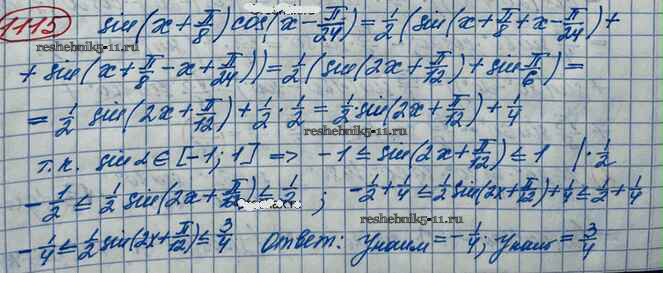 1115 sin(x+π/8)cos(x-π/24)=1/2(sin(x+π/8+x-π/24)+
www.reshebnik-mk.ru
+sin(x+π/8-x+π/24))=1/2(sin(2x+π/12)+sin π/6)=
=1/2 sin(2x+π/12)+1/2·1/2=1/2·sin(2x+π/12)+1/4
www.reshebnik-mk.ru
т.к. sin α∈[-1;1] => -1≤sin(2x+π/12)≤1 |·1/2
-1/2≤1/2 sin(2x+π/12)≤1/2; -1/2+1/4≤1/2 sin(2x+π/12)+1/4≤1/2+1/4
www.reshebnik-mk.ru
-1/4≤1/2 sin(2x+π/12)≤3/4 Ответ: yнаим=-1/4; yнаиб=3/4